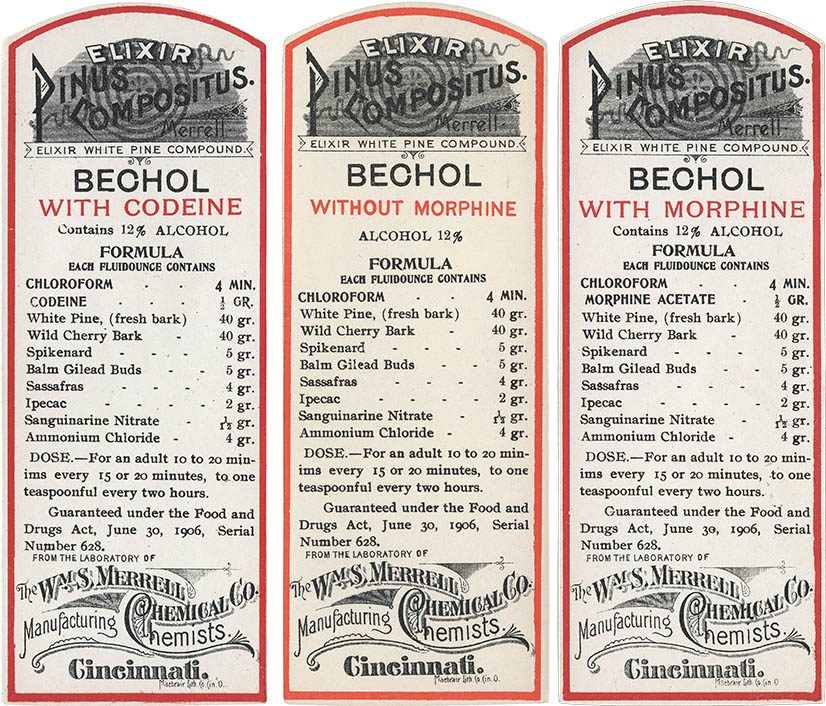 ELIXIR
PINUS
COMPOSITUS.
Merrell.
ELIXIR WHITE PINE COMPOUND.
BECHOL
WITH CODEINE
Contains 12% ALCOHOL
FORMULA
EACH FLUIDOUNCE CONTAINS
CHLOROFORM - - 4 MIN.
CODEINE - - - - ½ GR.
White Pine, (fresh bark) 40 gr.
Wild Cherry Bark - - 40 gr.
Spikenard - - - - 5 gr.
Balm Gilead Buds - - 5 gr.
Sassafras - - - - 4 gr.
Ipecac - - - - 2 gr.
Sanguinarine Nitrate - 1/12 gr.
Ammonium Chloride - 4 gr.
DOSE.—For an adult 10 to 20 min-
ims every 15 or 20 minutes, to one
teaspoonful every two hours.
Guaranteed under the Food and
Drugs Act, June 30, 1906, Serial
Number 628.
FROM THE LABORATORY OF
The Wm. S. Merrell
Chemical Co.
Manufacturing Chemists.
Cincinnati.
Macbrair Lith. Co. Cin. O.
ELIXIR
PINUS
COMPOSITUS.
Merrell.
ELIXIR WHITE PINE COMPOUND.
BECHOL
WITHOUT MORPHINE
ALCOHOL 12%
FORMULA
EACH FLUIDOUNCE CONTAINS
CHLOROFORM - - 4 MIN.
White Pine, (fresh bark) 40 gr.
Wild Cherry Bark - 40 gr.
Spikenard - - - 5 gr.
Balm Gilead Buds - - 5 gr.
Sassafras - - - - 4 gr.
Ipecac - - - - 2 gr.
Sanguinarine Nitrate - 1/12 gr.
Ammonium Chloride - 4 gr.
DOSE.—For an adult 10 to 20 min-
ims every 15 or 20 minutes, to one
teaspoonful every two hours.
Guaranteed under the Food and
Drugs Act, June 30, 1906, Serial
Number 628.
FROM THE LABORATORY OF
The Wm. S. Merrell
Chemical Co.
Manufacturing Chemists.
Cincinnati.
Macbrair Lith. Co. Cin. O.
ELIXIR
PINUS
COMPOSITUS.
Merrell.
ELIXIR WHITE PINE COMPOUND.
BECHOL
WITH MORPHINE
Contains 12% ALCOHOL
FORMULA
EACH FLUIDOUNCE CONTAINS
CHLOROFORM - - 4 MIN.
MORPHINE ACETATE - ½ GR.
White Pine, (fresh bark) 40 gr.
Wild Cherry Bark - 40 gr.
Spikenard - - - - 5 gr.
Balm Gilead Buds - - 5 gr.
Sassafras - - - - 4 gr.
Ipecac - - - - 2 gr.
Sanguinarine Nitrate - 1/12 gr.
Ammonium Chloride - 4 gr.
DOSE.—For an adult 10 to 20 min-
ims every 15 or 20 minutes, to one
teaspoonful every two hours.
Guaranteed under the Food and
Drugs Act, June 30, 1906, Serial
Number 628.
FROM THE LABORATORY OF
The Wm. S. Merrell
Chemical Co.
Manufacturing Chemists.
Cincinnati.
Macbrair Lith. Co. Cin. O.